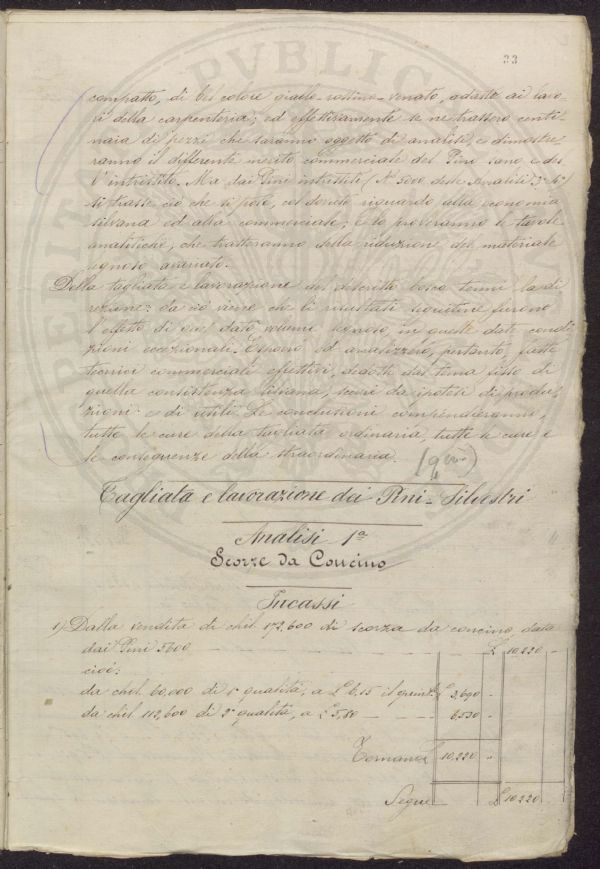 33
compatto, di bel colore giallo-rossino-venato, adatto ai lavo-
ri della carpenteria; ed effettivamente se ne trassero centi-
naia di pezzi che saranno oggetto di analisi, e dimostre-
ranno il differente merito commerciale del Pino sano e del-
l'intristito. Ma dai Pini intristiti (N° 5000 delle Analisi 3ª 4ª)
si trasse ciò che si potè, col dovuto riguardo alla economia
silvana ed alla commerciale; e lo proveranno le tavole
analitiche, che tratteranno della riduzione del materiale
legnoso avvenuto.
Della tagliata e lavorazione del descritto bosco tenni la di-
rezione: da ciò viene che li risultati seguitine furono
l'effetto di quel dato volume legnoso, in quelle date condi-
zioni eccezionali. Esporrò ed analizzerò, pertanto, fatti
tecnici commerciali effettivi, dedotti dal tema fisso di
quella consistenza silvana, scevri da ipotesi di produ-
zioni e di utili. Le conclusioni comprenderanno,
tutte le cure della tagliata ordinaria, tutte le cure e
le conseguenze della straordinaria.
Tagliata e lavorazione dei Pini-Silvestri
Analisi 1ª
Scorze da Concino
Incassi
1) Dalla vendita di chil 172,600 di scorza da concino, data
dai Pini 5600 — £ 10,220 -
cioè:
da chil. 60,000 di 1ª qualità, a £ 6,15 il quint. £ 3,690 -
da chil 112,600 di 2ª qualità, a £ 5,80 — 6,530 -
Tornano £ 10,220 "
Segue £ 10,220
PVBLIC